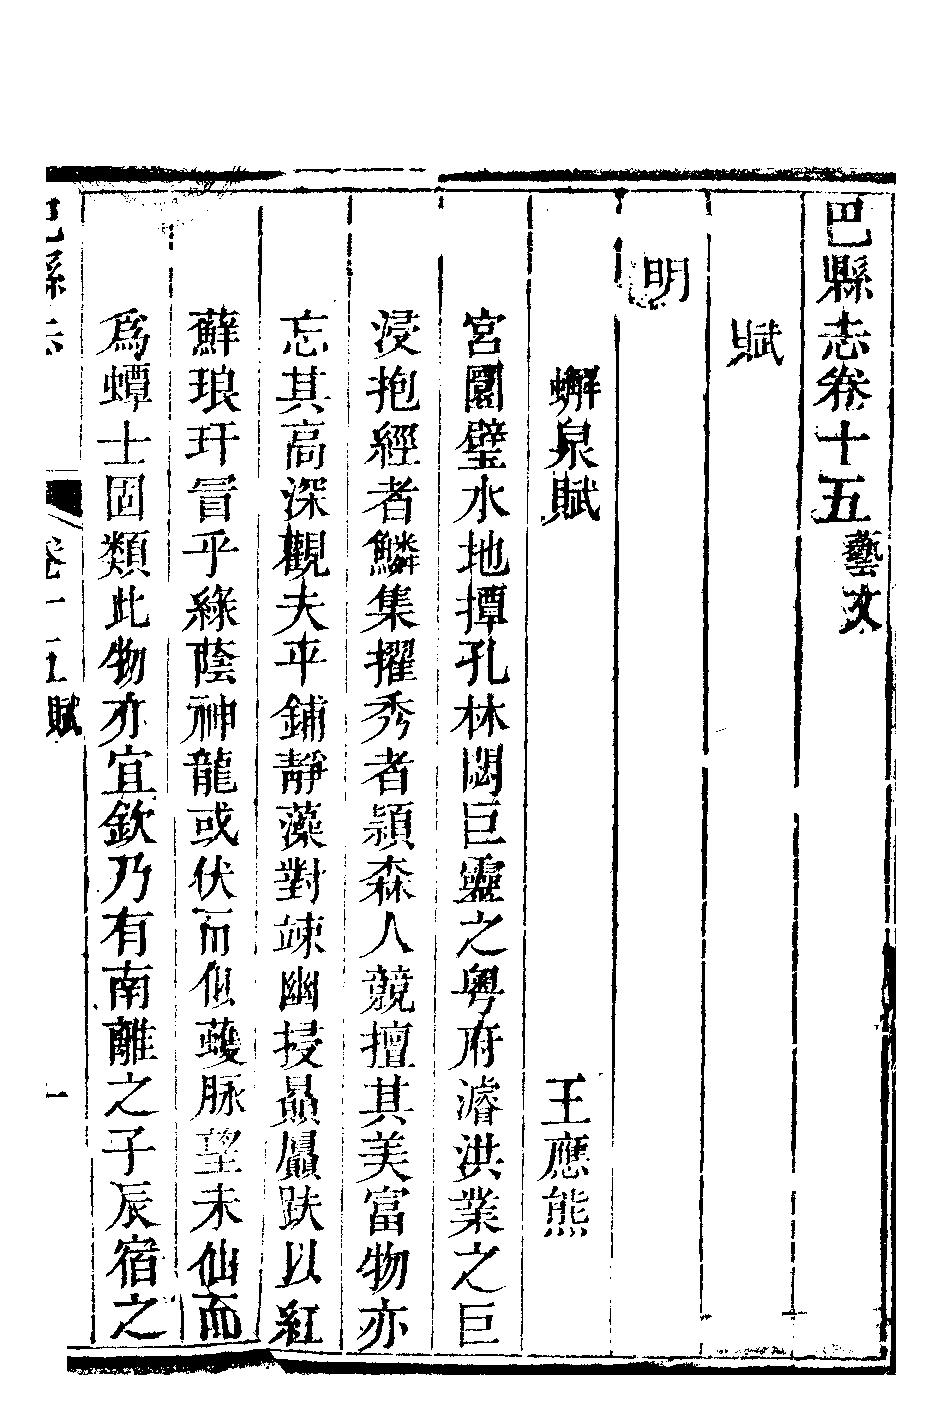 巴縣志卷十五 藝文
賦
明
蠏泉賦 王應熊
宮圜璧水地撢孔林閟巨靈之粤府濬洪業之巨
浸抱經者鱗集擢秀者頴森人競擅其美富物亦
忘其高深觀夫平鋪靜藻對竦幽捘贔屭趺以紅
蘚琅玕冒乎綠蔭神龍或伏而似蠖脉望未仙而
爲蟫士固類此物亦宜欽乃有南離之子辰宿之
巴縣志 卷十五 賦 一